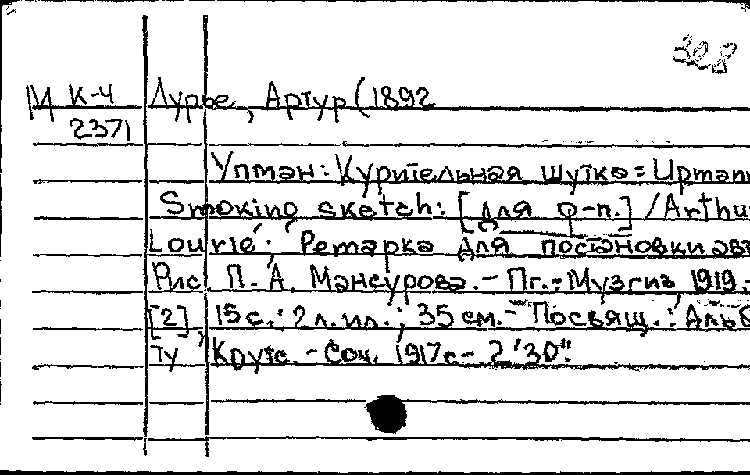 328
М К-4 Лурье, Артур (1892
2371
Упман: Курительная шутка = Upmann
Smoking sketch: [для ф-п.] / Arthu
Lourié; Ремарка для постановки авт
Рис. П. А. Мансурова. - Пг.: Музгиз, 1919. -
[2], 15 с.: 2 л. ил.; 35 см. - Посвящ.: Альб
ту Крутс. - Соч. 1917 г. - 2'30".